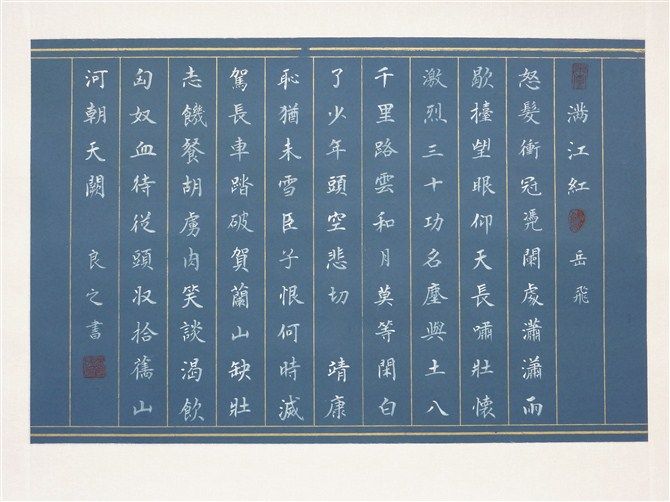 满江紅 岳飛
怒髮衝冠凴闌處瀟瀟雨
歇擡望眼仰天長嘯壯懷
激烈三十功名塵與土八
千里路雲和月莫等閑白
了少年頭空悲切 靖康
恥猶未雪臣子恨何時滅
駕長車踏破賀蘭山缺壯
志饑餐胡虜肉笑談渴飲
匈奴血待從頭収拾舊山
河朝天闕 良之書